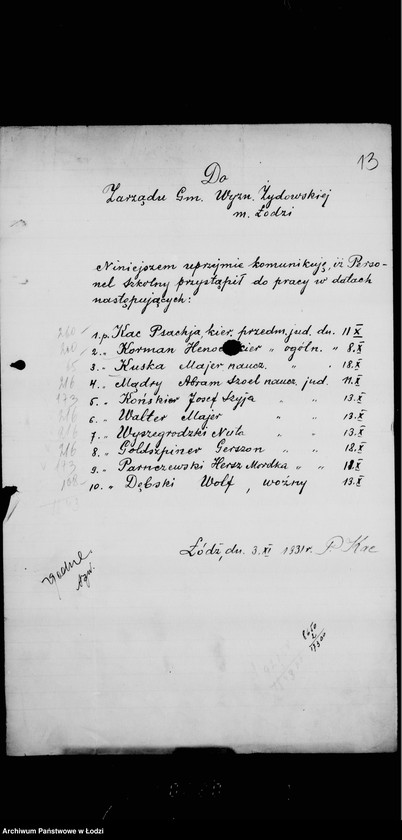 13
Do
Zarządu Gm. Wyzn. Żydowskiej
m. Łodzi
Niniejszem uprzejmie komunikuję, iż Perso-
nel szkolny przystąpił do pracy w datach
następujących:
1. p. Kac Psachja, kier. przedm. jud. dn. 11 X
2. „ Korman Henoch kier „ ogóln. „ 8. X
3. „ Kuska Majer naucz. „ „ 18. X
4. „ Mądry Abram Icoel naucz. jud. 11. X
5. „ Końskier Josef Szyja „ „ 13. X
6. „ Walter Majer „ „ 13. X
7. „ Wyszegrodzki Nuta „ „ 13. X
8. „ Goldszpiner Gerszon „ „ 12. X
9. „ Parnczewski Hersz Mordka „ „ X
10. „ Dębski Wolf, woźny 13. X
Łódź, dn. 3. XI 1931 r. P Kac
zgodne
Archiwum Państwowe w Łodzi